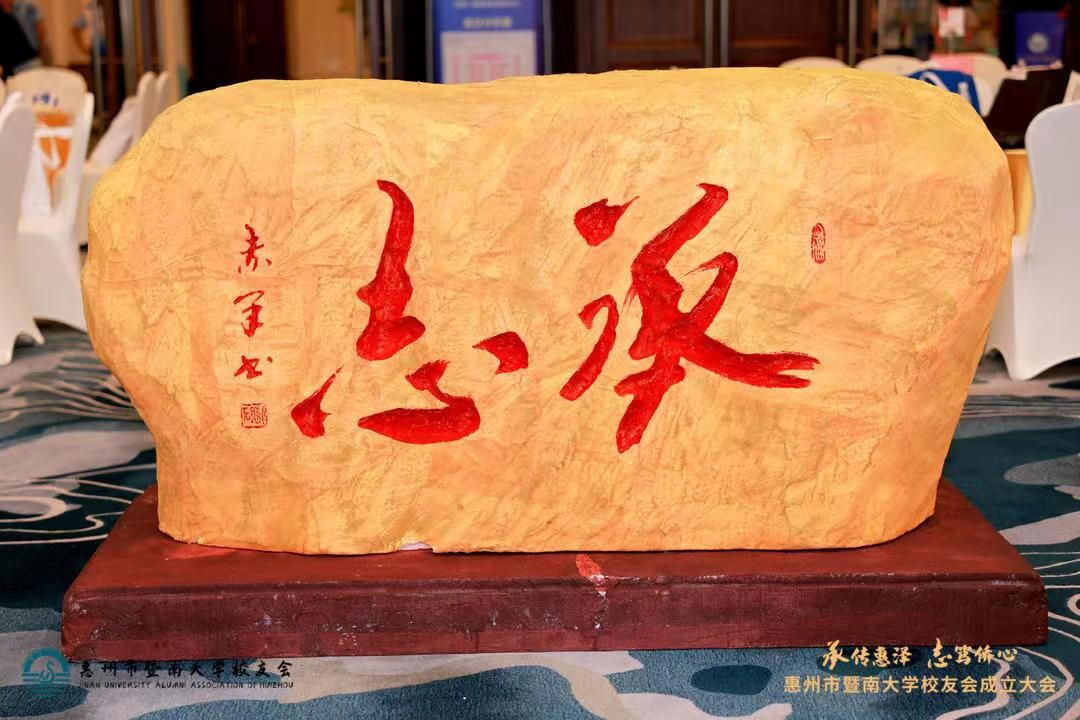 承志
书
惠州市暨南大学校友会
JINAN UNIVERSITY ALUMNI ASSOCIATION OF HUIZHOU
承传惠泽 志笃侨心
惠州市暨南大学校友会成立大会